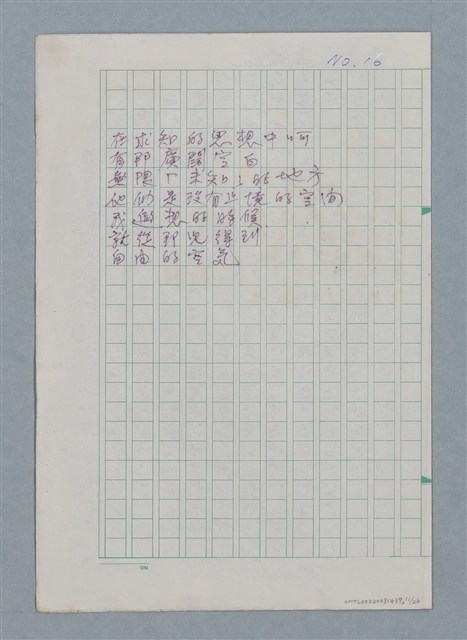 NO. 16
在求知的思想中呵
有那廣闊空白
無限「未知」的地方
他們是沒有止境的空間
我幽想的時候
就從那兒得到
自由的空氣